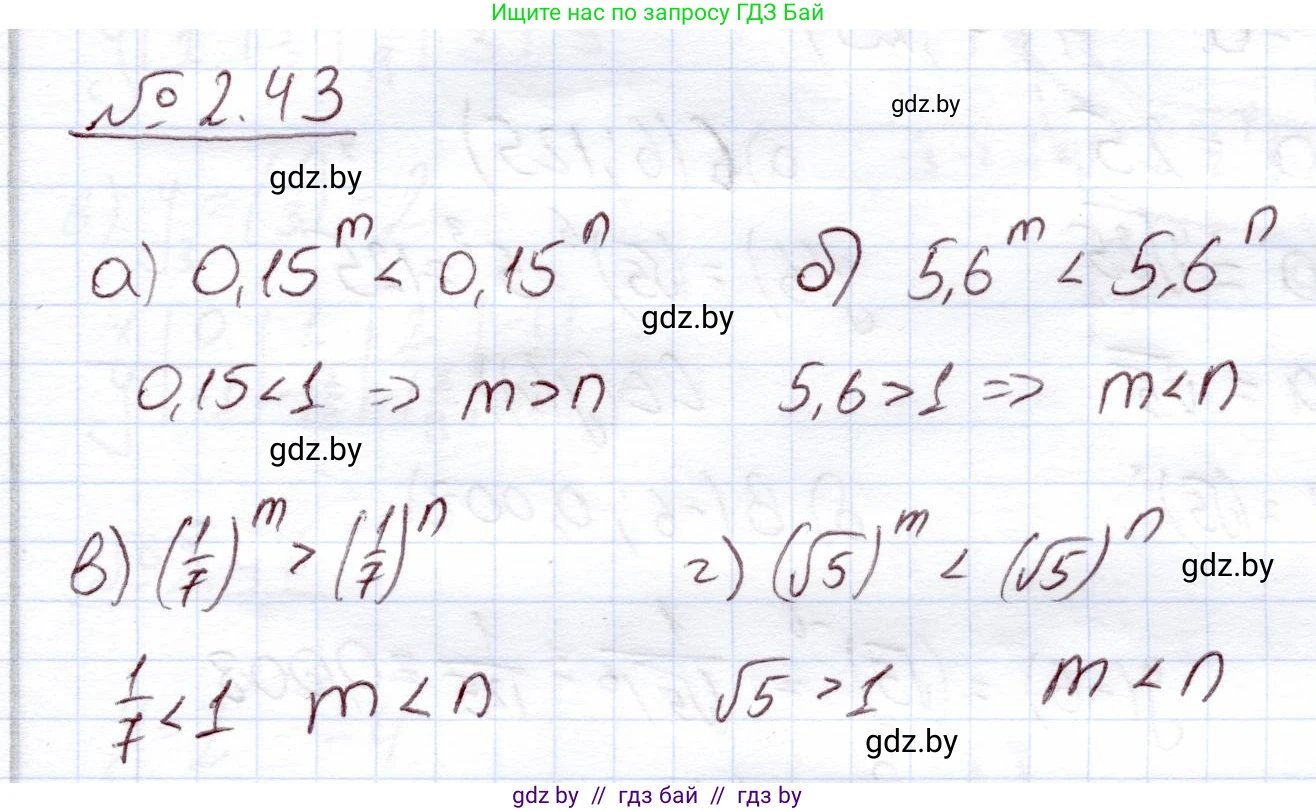 Ищите нас по запросу ГДЗ Бай
№ 2.43
gdz.by
gdz.by
а) 0,15^m < 0,15^n
б) 5,6^m < 5,6^n
gdz.by
0,15<1 => m>n
5,6>1 => m<n
gdz.by
в) (1/7)^m > (1/7)^n
г) (√5)^m < (√5)^n
gdz.by
1/7 < 1 m < n
√5 > 1 m < n
gdz.by
gdz by // гдз бай // гдз by